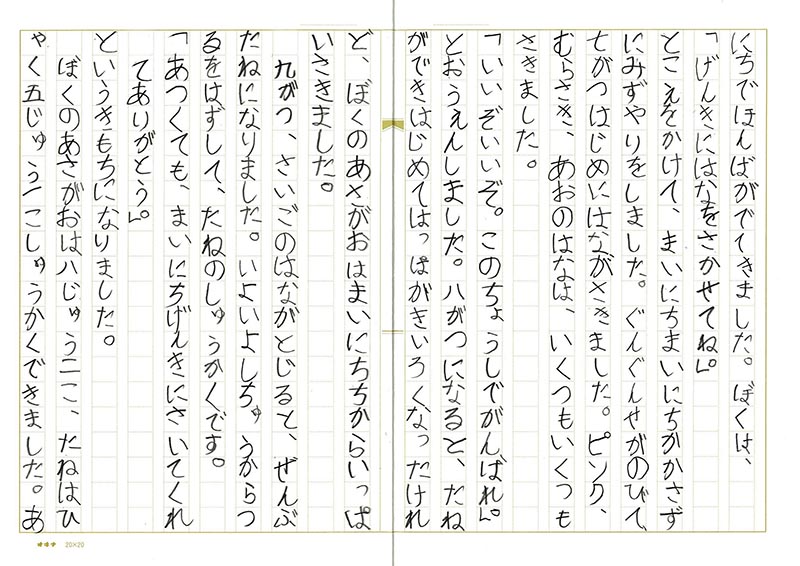 にちでほんばがでてきました。ぼくは、
「げんきにはなをさかせてね」。
とこえをかけて、まいにちまいにちかかさず
にみずやりをしました。ぐんぐんせがのびて、
七がつはじめにはながさきました。ピンク、
むらさき、あおのはなは、いくつもいくつも
さきました。
「いいぞいいぞ。このちょうしでがんばれ」。
とおうえんしました。八がつになると、たね
ができはじめてはっぱがきいろくなったけれ
ど、ぼくのあさがおはまいにちちからいっぱ
いさきました。
九がつ、さいごのはながとじると、ぜんぶ
たねになりました。いよいよしちゅうからつ
るをはずして、たねのしゅうかくです。
「あつくても、まいにちげんきにさいてくれ
てありがとう」。
というきもちになりました。
ぼくのあさがおは八じゅう二こ、たねはひ
ゃく五じゅう一こしゅうかくできました。あ
20×20